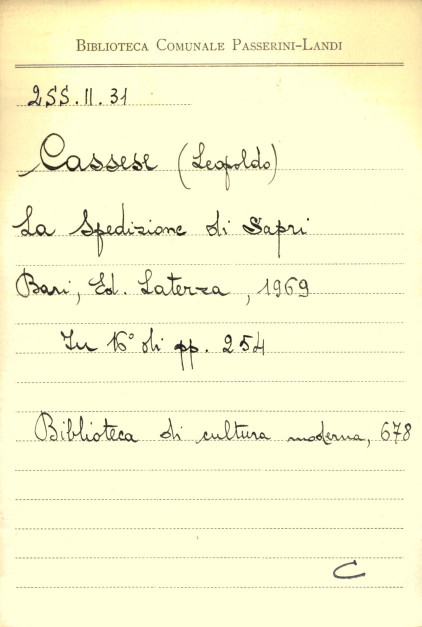 BIBLIOTECA COMUNALE PASSERINI-LANDI
2SS.II.31
Cassese (Leopoldo)
La Spedizione di Sapri
Bari, Ed. Laterza, 1969
In 16° di pp. 254
Biblioteca di cultura moderna, 678
C